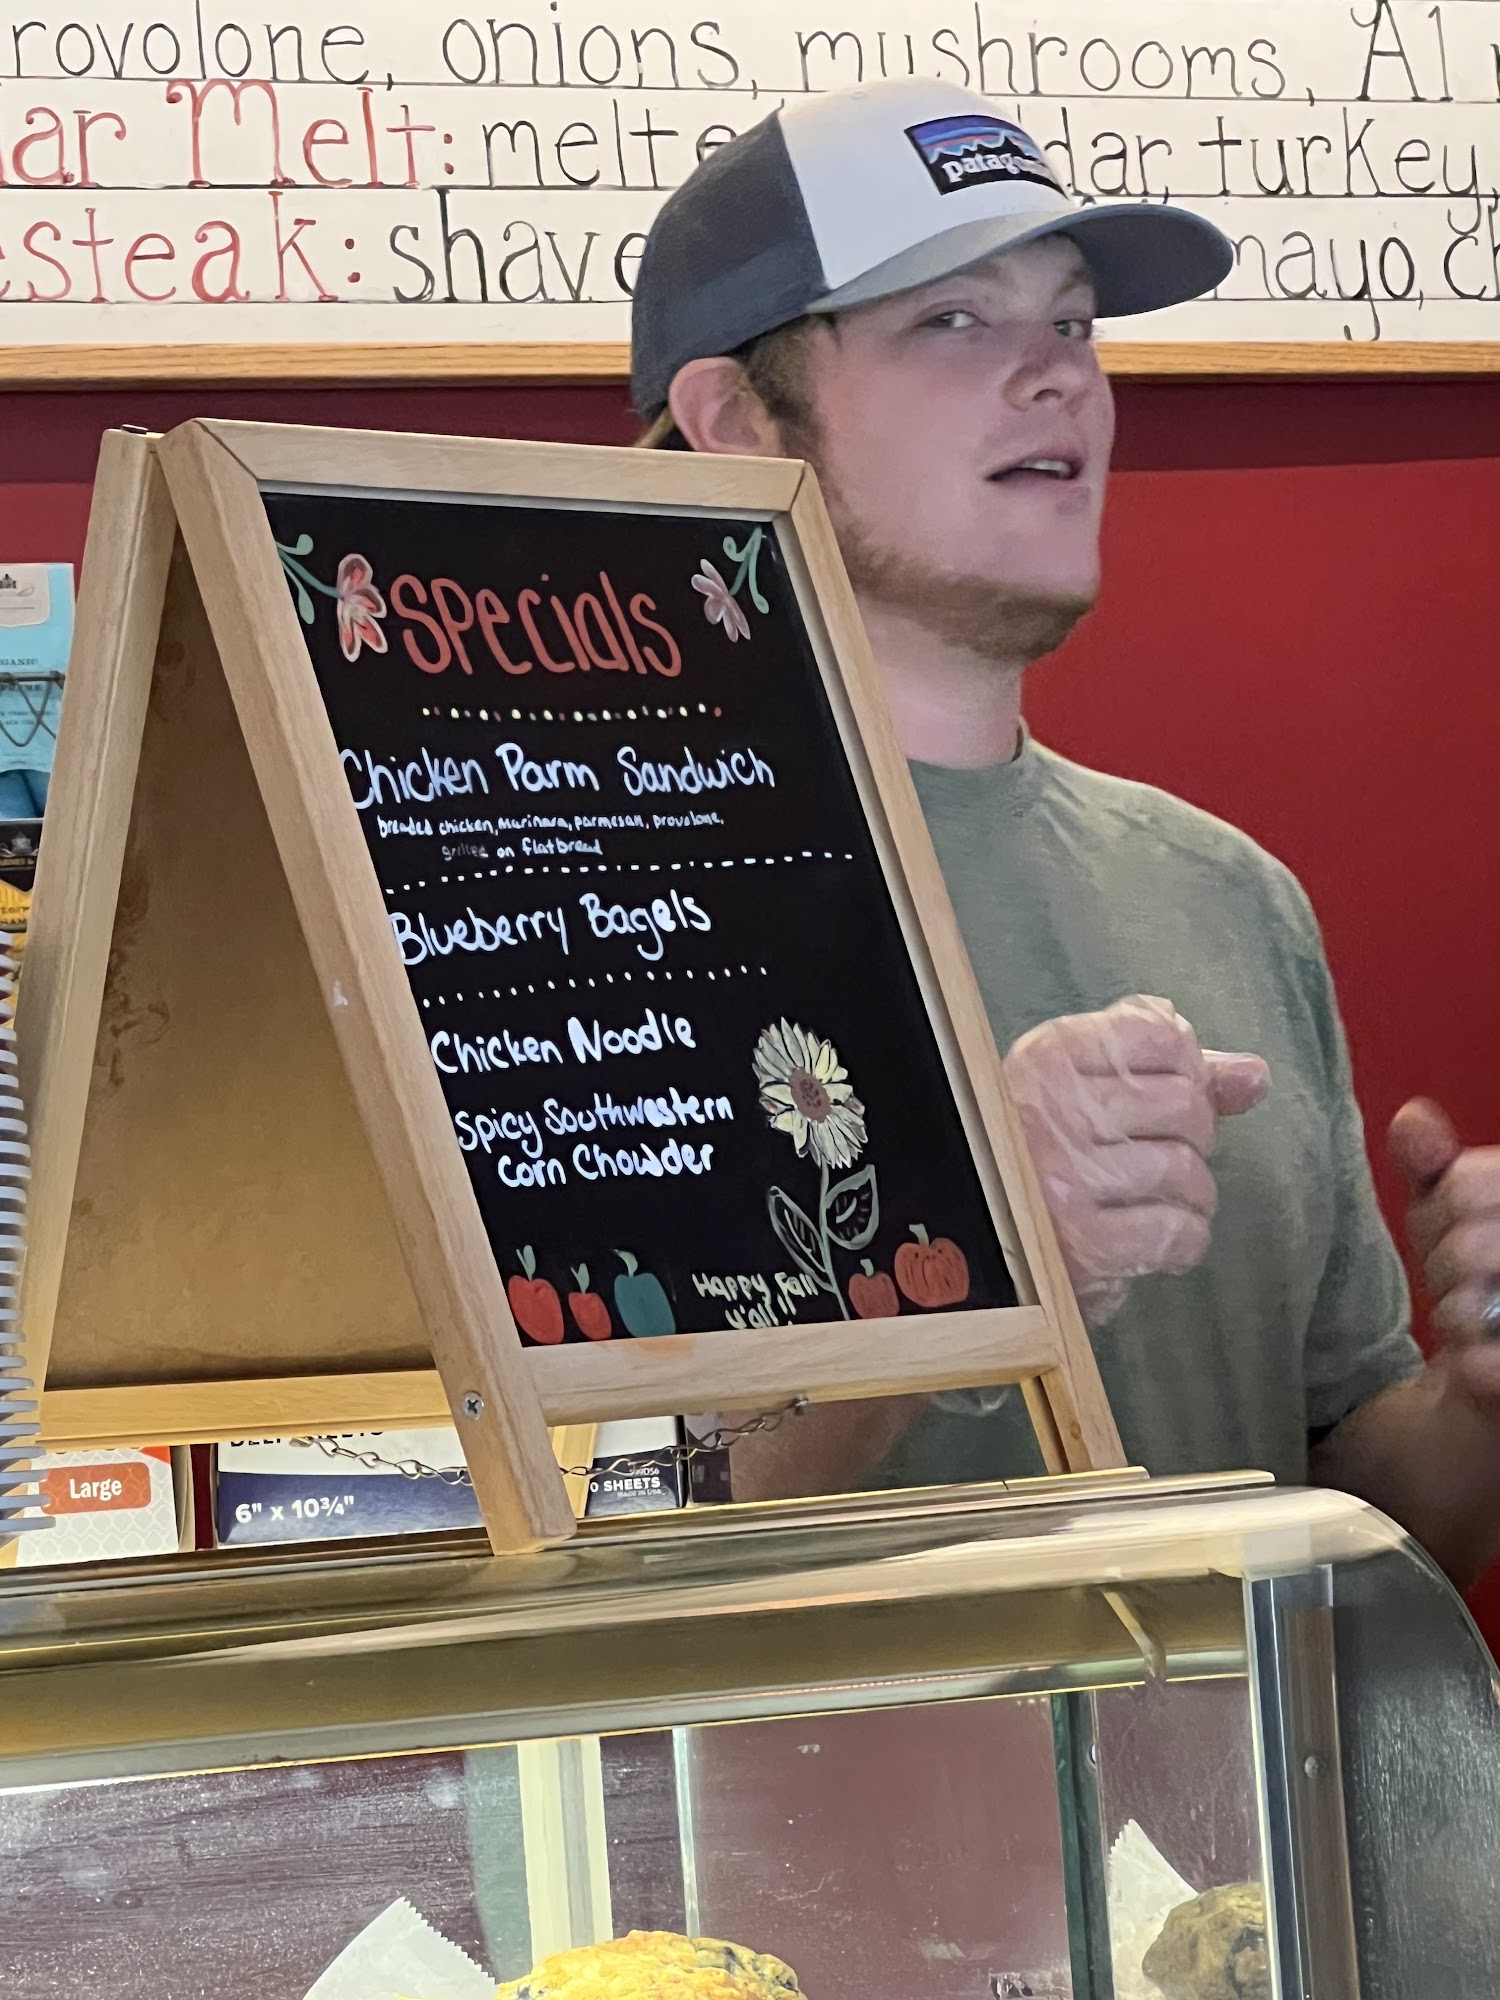 rovolone, onions, mushrooms, A1
ar Melt: melte dar, turkey,
esteak: shave mayo, ch
patagonia
Specials
Chicken Parm Sandwich
breaded chicken, marinara, parmesan, provolone,
grilled on flatbread
Blueberry Bagels
Chicken Noodle
Spicy Southwestern
Corn Chowder
Happy Fall
y'all!!
Large
6" x 10¾"
0 SHEETS